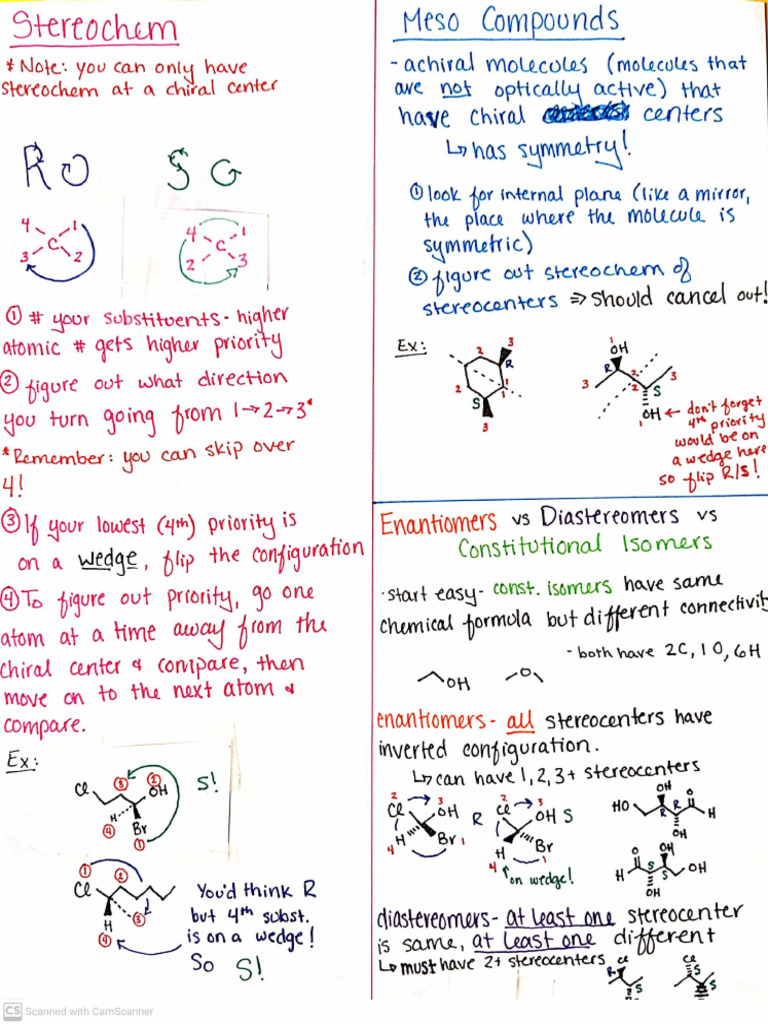 Stereochem
*Note: you can only have
stereochem at a chiral center
R S
4 1
C
3 2
4 1
C
2 3
① # your substituents - higher
atomic # gets higher priority
② figure out what direction
you turn going from 1→2→3*
*Remember: you can skip over
4!
③ If your lowest (4th) priority is
on a wedge, flip the configuration
④ To figure out priority, go one
atom at a time away from the
chiral center & compare, then
move on to the next atom &
compare.
Ex:
Cl ③ ② OH S!
H
④ Br
①
① ②
Cl
③
H
④
You'd think R
but 4th subst.
is on a wedge!
So S!
Meso Compounds
- achiral molecules (molecules that
are not optically active) that
have chiral centers
↳ has symmetry!
① look for internal plane (like a mirror,
the place where the molecule is
symmetric)
② figure out stereochem of
stereocenters ⇒ should cancel out!
Ex:
3
2 R
1
2 1
S
3
1
OH
R 2 3
3 2 S
1 OH ← don't forget
4th priority
would be on
a wedge here
so flip R/S!
Enantiomers vs Diastereomers vs
Constitutional Isomers
· start easy - const. isomers have same
chemical formula but different connectivity
- both have 2C, 1O, 6H
OH O
enantiomers - all stereocenters have
inverted configuration.
↳ can have 1, 2, 3+ stereocenters
2 3
Cl OH R
H Br 1
4
2 3
Cl OH S
H Br
4 1
on wedge!
OH O
HO R R H
OH
O OH
H S S OH
OH
diastereomers - at least one stereocenter
is same, at least one different
↳ must have 2+ stereocenters
Cl
R
S
Cl
S
S
CS Scanned with CamScanner